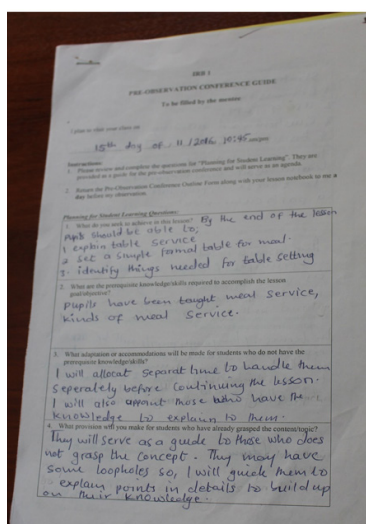 SRB 1
PRE-OBSERVATION CONFERENCE GUIDE
To be filled by the mentee
I plan to visit your class on
15th day of 11/2016 10:45 am/pm
Instructions:
1. Please review and complete the questions for "Planning for Student Learning". They are
provided as a guide for the pre-observation conference and will serve as an agenda.
2. Return the Pre-Observation Conference Outline Form along with your lesson notebook to me a
day before my observation.
Planning for Student Learning Questions:
1. What do you seek to achieve in this lesson? By the end of the lesson
Pupils should be able to;
1 explain table service
2 set a simple formal table for meal.
3. identify things needed for table setting
2. What are the prerequisite knowledge/skills required to accomplish the lesson
goal/objective?
Pupils have been taught meal service,
kinds of meal service.
3. What adaptation or accommodations will be made for students who do not have the
prerequisite knowledge/skills?
I will allocat separat time to handle them
seperately before continuing the lesson.
I will also appoint those who have the
knowledge to explain to them.
4. What provision will you make for students who have already grasped the content/topic?
They will serve as a guide to those who does
not grasp the concept. They may have
some loopholes so, I will guide them to
explain points in details to build up
on their knowledge.